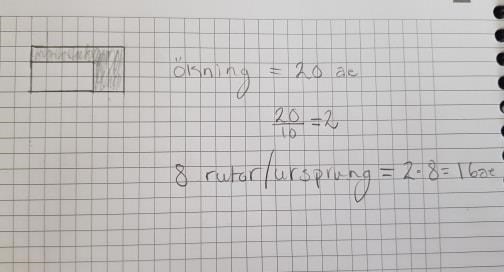 ökning = 20 ae
20/10 = 2
8 rutor/ursprung = 2·8 = 16ae